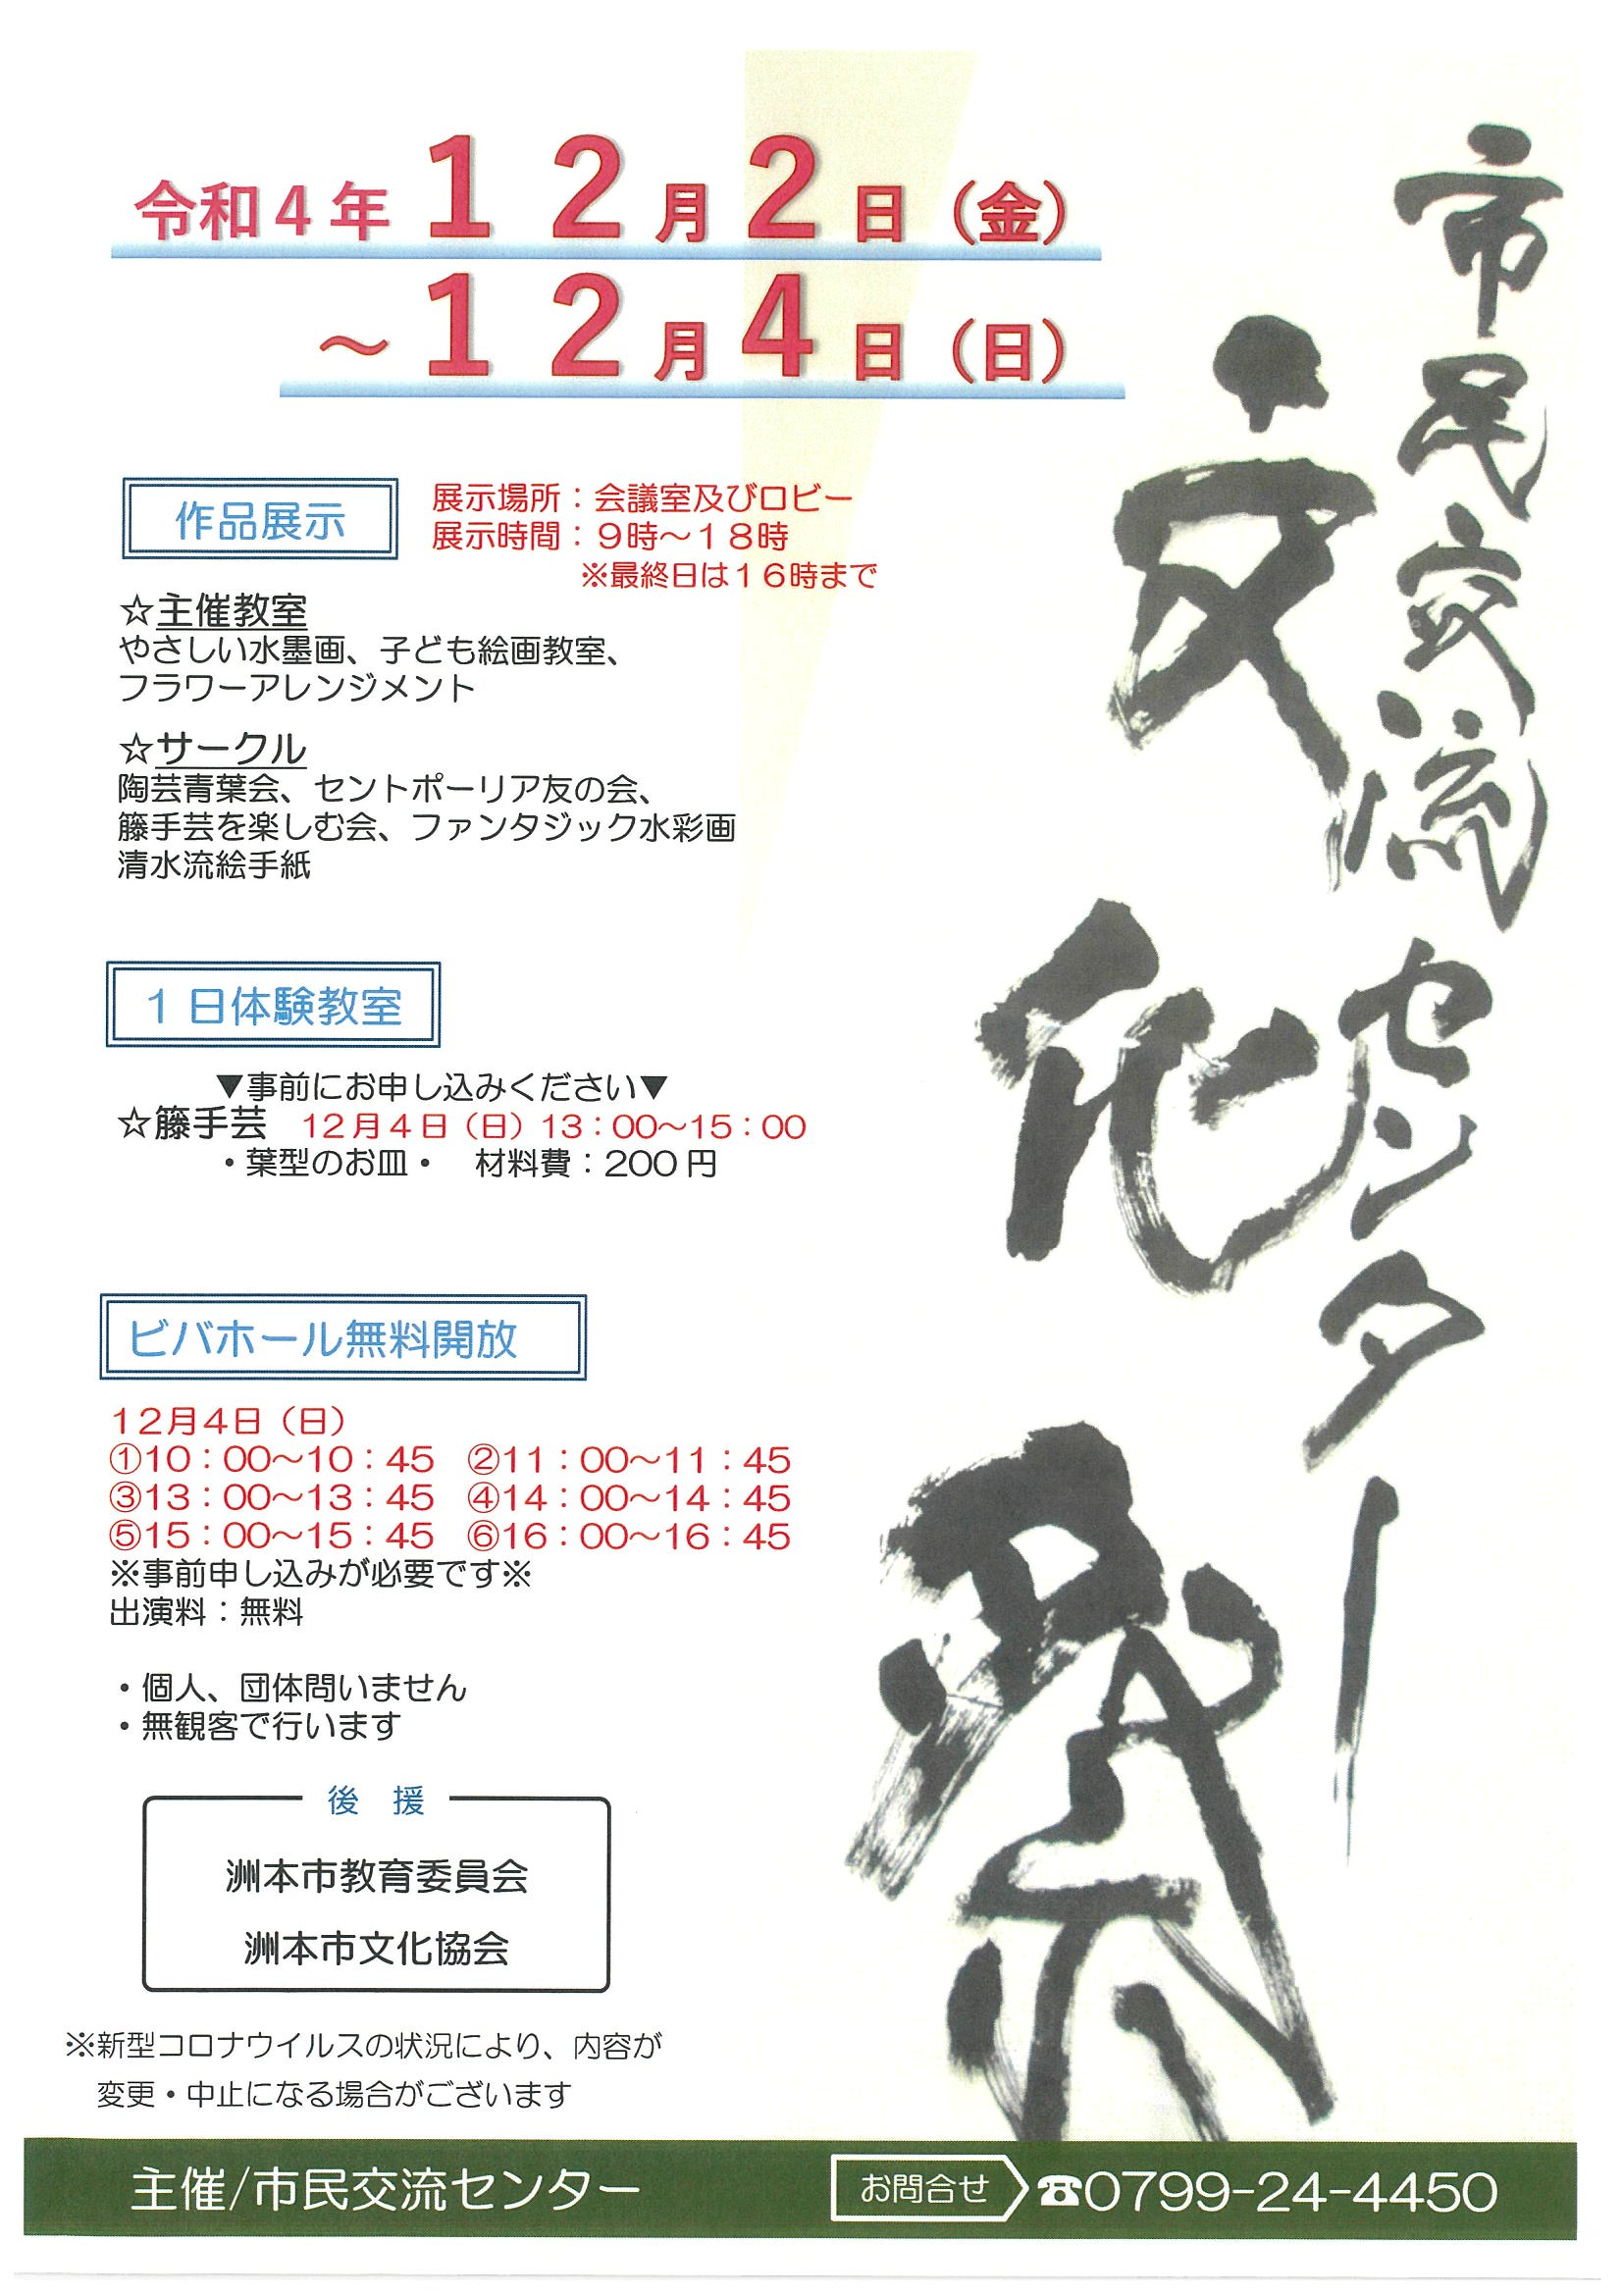 市民交流センター
文化祭
令和4年 12月2日（金）
～12月4日（日）
作品展示
展示場所：会議室及びロビー
展示時間：９時～１８時
※最終日は１６時まで
☆主催教室
やさしい水墨画、子ども絵画教室、
フラワーアレンジメント
☆サークル
陶芸青葉会、セントポーリア友の会、
籐手芸を楽しむ会、ファンタジック水彩画
清水流絵手紙
１日体験教室
▼事前にお申し込みください▼
☆籐手芸　12月４日（日）13：00～15：00
・葉型のお皿・　材料費：200円
ビバホール無料開放
１２月４日（日）
①10：00～10：45　②11：00～11：45
③13：00～13：45　④14：00～14：45
⑤15：00～15：45　⑥16：00～16：45
※事前申し込みが必要です※
出演料：無料
・個人、団体問いません
・無観客で行います
後　援
洲本市教育委員会
洲本市文化協会
※新型コロナウイルスの状況により、内容が
変更・中止になる場合がございます
主催/市民交流センター
お問合せ ☎0799-24-4450